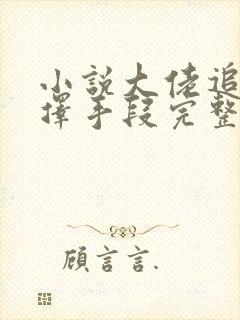 小說大佬追
擇手段完整
顧言言.